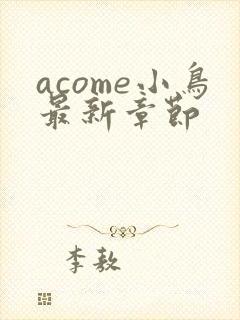 acome小鸟
最新章节
李敖